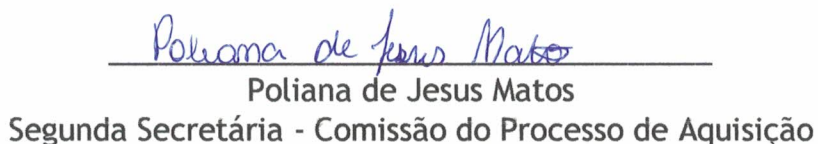 Poliana de Jesus Matos
Poliana de Jesus Matos
Segunda Secretária - Comissão do Processo de Aquisição